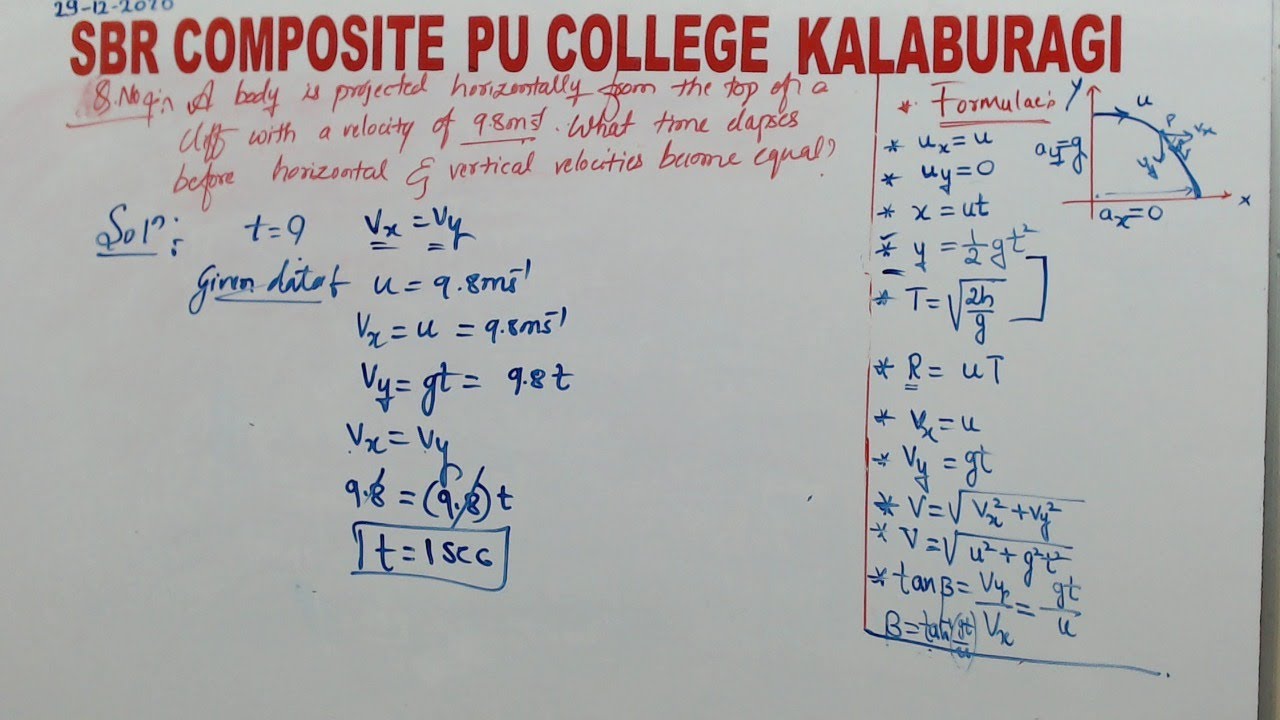 29-12-2020
SBR COMPOSITE PU COLLEGE KALABURAGI
A body is projected horizontally from the top of a
cliff with a velocity of 9.8ms⁻¹. What time elapses
before horizontal & vertical velocities become equal?
Solⁿ:
t=?
Vx = Vy
Given data
u = 9.8ms⁻¹
Vx = u = 9.8ms⁻¹
Vy = gt = 9.8t
Vx = Vy
9.8 = (9.8)t
t = 1 sec
* Formulae:
* ux = u
* uy = 0
* x = ut
* y = ½gt²
* T = √(2h/g)
* R = uT
* Vx = u
* Vy = gt
* V = √(Vx² + Vy²)
* V = √(u² + g²t²)
* tan β = Vy/Vx = gt/u
β = tan⁻¹(gt/u)
Y
u
P
Vx
Vy
ay = g
ax = 0
x